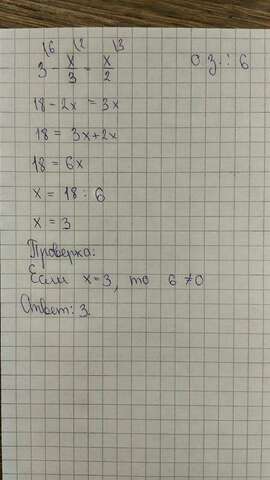 \6 \2 \3
3 - x/3 = x/2 О.З.: 6
18 - 2x = 3x
18 = 3x+2x
18 = 6x
x = 18 : 6
x = 3
Проверка:
Если x=3, то 6 ≠0
Ответ: 3.